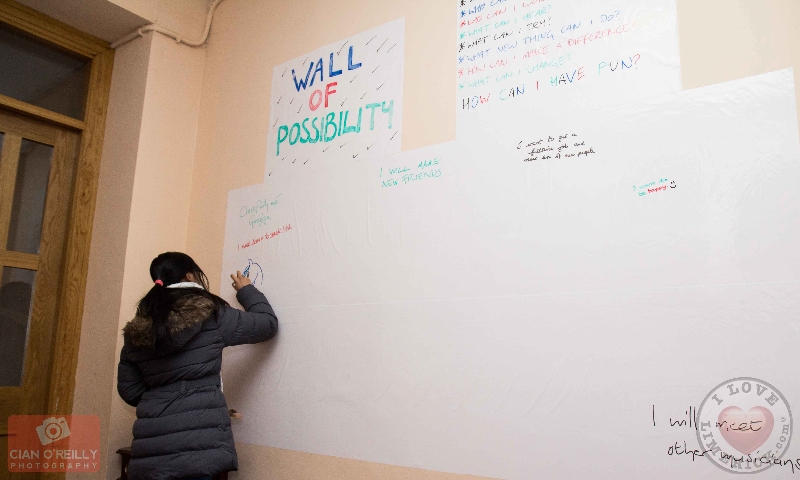 WHAT CAN I HEAR?
* WHAT CAN I TRY?
* WHAT NEW THING CAN I DO?
* HOW CAN I MAKE A DIFFERENCE?
* WHAT CAN I CHANGE?
HOW CAN I HAVE FUN?
WALL
OF
POSSIBILITY
I WILL MAKE
NEW FRIENDS
I want to get a
fulltime job and
meet lots of new people
I want to
be happy
I will meet
other musicians
I LOVE
LIMERICK.com
CIAN O'REILLY
PHOTOGRAPHY